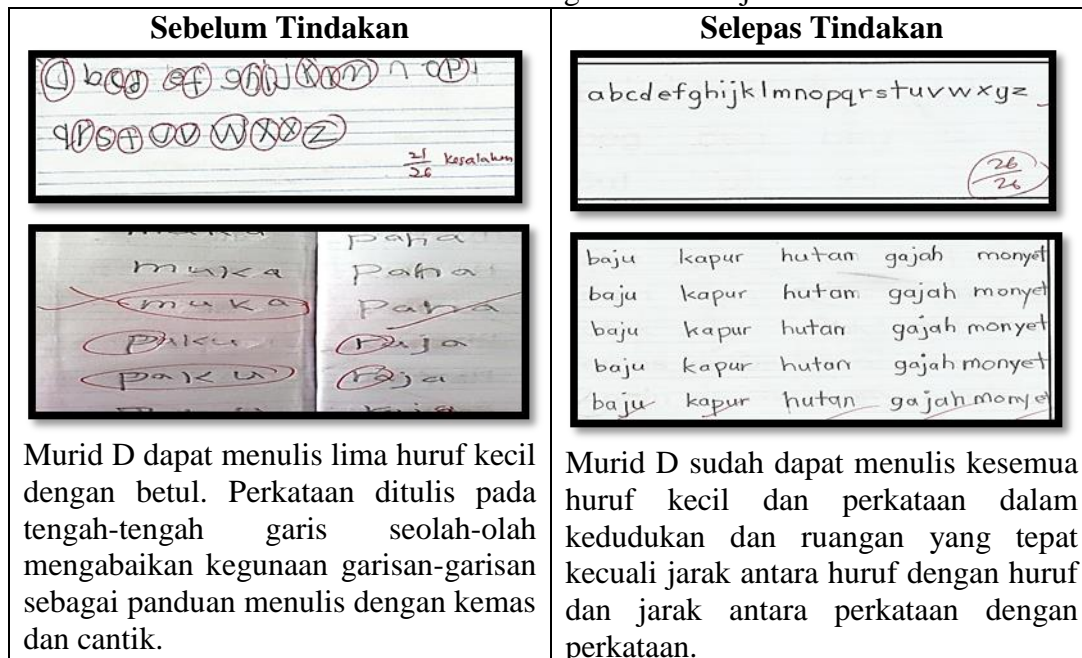 Sebelum Tindakan
21/26 kesalahan
muka
muka
paku
paku
paha
paha
paha
raja
raja
Murid D dapat menulis lima huruf kecil
dengan betul. Perkataan ditulis pada
tengah-tengah garis seolah-olah
mengabaikan kegunaan garisan-garisan
sebagai panduan menulis dengan kemas
dan cantik.
Selepas Tindakan
abcdefghijklmnopqrstuvwxyz
26/26
baju kapur hutan gajah monyet
baju kapur hutan gajah monyet
baju kapur hutan gajah monyet
baju kapur hutan gajah monyet
baju kapur hutan gajah monyet
Murid D sudah dapat menulis kesemua
huruf kecil dan perkataan dalam
kedudukan dan ruangan yang tepat
kecuali jarak antara huruf dengan huruf
dan jarak antara perkataan dengan
perkataan.